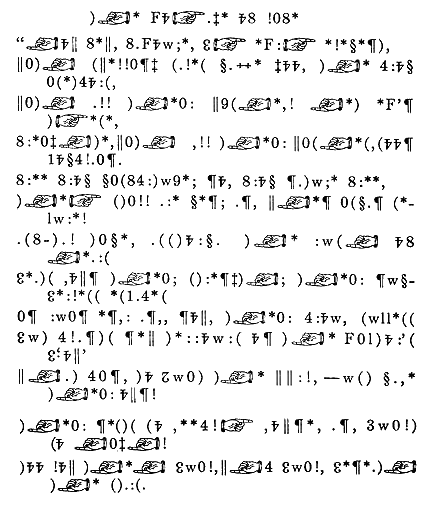 )☚* F♄☞.‡* ♄8 !08*
“☚♄‖ 8*‖, 8.F♄w;*, Ɛ☞ *F:☞ *!*§*¶),
‖0)☚ (‖*!!0¶‡ (.!*( §.++* ‡♄♄, )☚* 4:♄§ 0(*)4♄:(,
‖0)☚ .!! )☚*0: ‖9(☚*,! ☚*) *F'¶ )☞*(*,
8:*0‡☚)*,‖0)☚ ,!! )☚*0: ‖0(☚*(,(♄♄¶ 1♄§4!.0¶.
8:** 8:♄§ §0(84:)w9*; ¶♄, 8:♄§ ¶.)w;* 8:**,
)☚*☞ ()0!! .:* §*¶; .¶, ‖☚*¶ 0(§.¶ (*-lw:*!
.(8-).! )0§*, .(()♄:§. )☚* :w(☚ ♄8 ☚*.:(
Ɛ*.)( ,♄‖¶ )☚*0; ():*¶‡)☚; )☚*0: ¶w§-Ɛ*:!*(( *(1.4*(
0¶ :w0¶ *¶,: .¶,, ¶♄‖, )☚*0: 4:♄w, (wll*((
Ɛw) 4!.¶)( ¶*‖ )*::♄w:( ♄¶ )☚* F0l)♄:'( Ɛ:♄‖'
‖☚.) 40¶, )♄ Ʒw0) )☚* ‖‖:!,—w() §.,* )☚*0: ♄‖¶!
)☚*0: ¶*()( (♄ ,**4!☞ ,♄‖¶*, .¶, 3w0!) (♄ ☚0‡☚!
)♄♄ !♄‖ )☚*☚* Ɛw0!,‖☚4 Ɛw0!, Ɛ*¶*.)☚ )☚* ().:(.